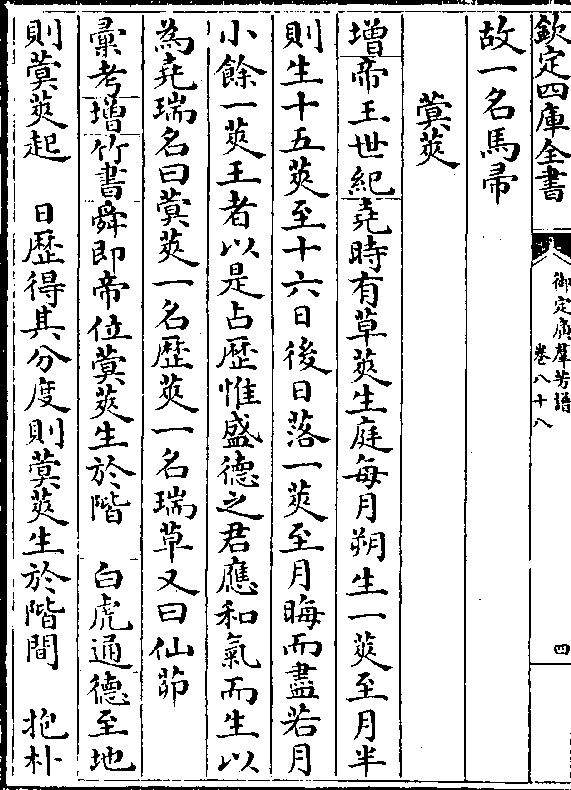 欽定四庫全書
御定廣羣芳譜
卷八十八
四
故一名馬帚
蓂莢
增帝王世紀堯時有草莢生庭每月朔生一莢至月半
則生十五莢至十六日後日落一莢至月晦而盡若月
小餘一莢王者以是占歷惟盛德之君應和氣而生以
為堯瑞名曰蓂莢一名歷莢一名瑞草又曰仙茆
彚考增竹書舜即帝位蓂莢生於階 白虎通德至地
則蓂莢起 日歷得其分度則蓂莢生於階間 抱朴